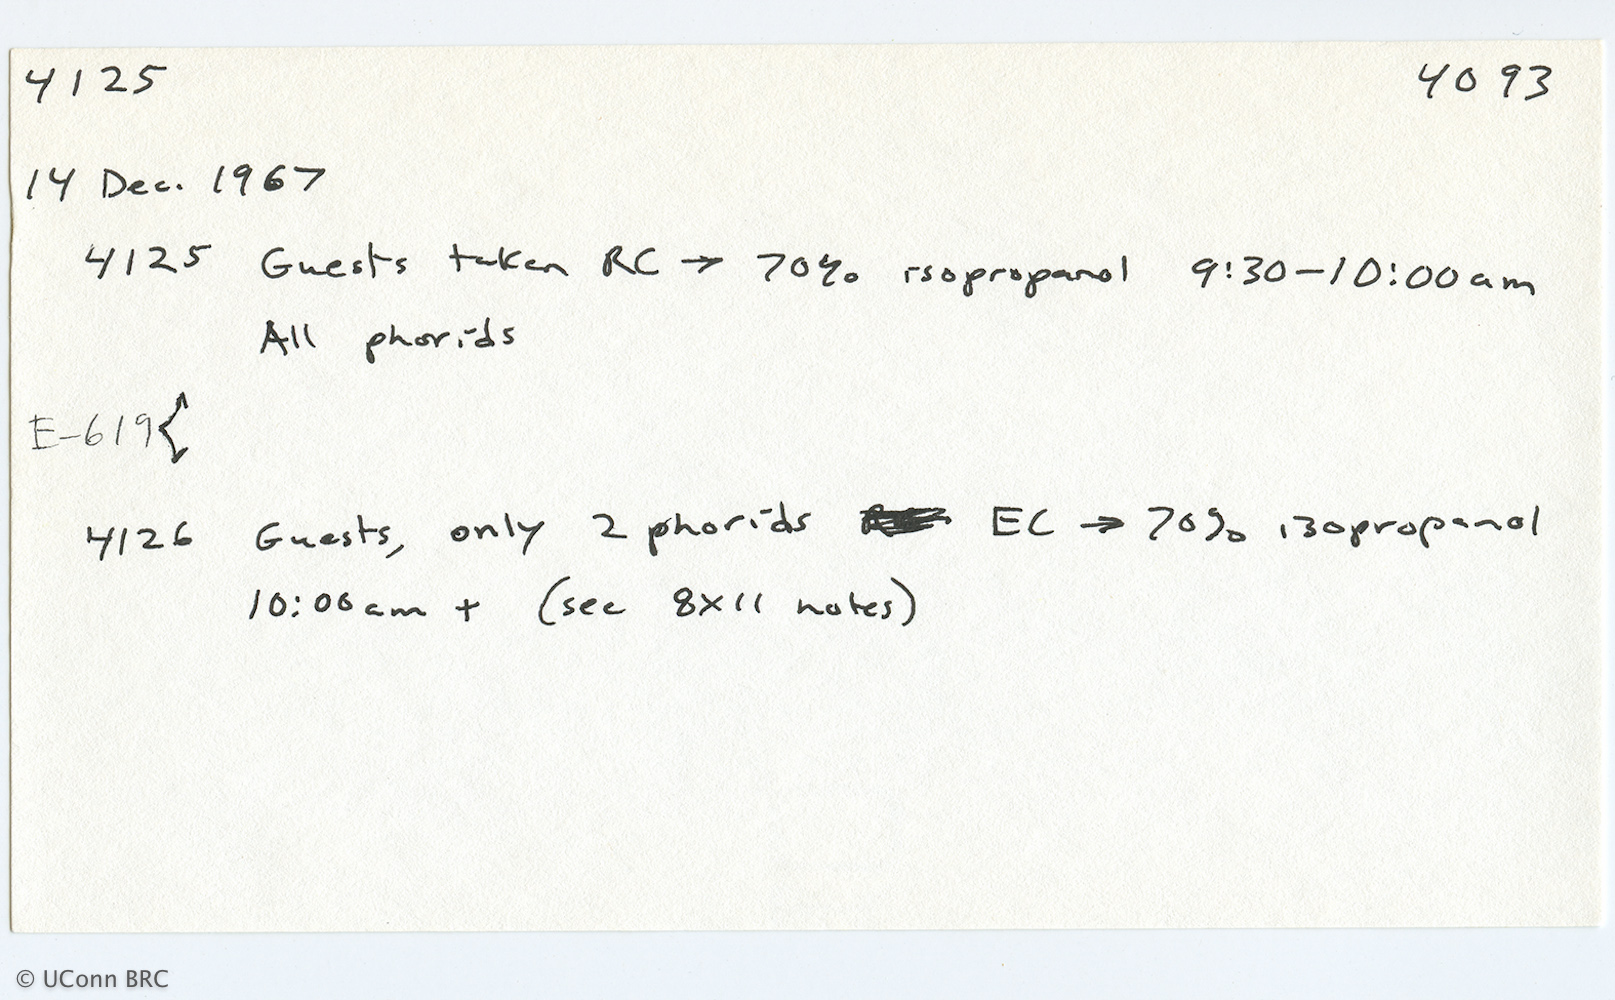 4125 4093
14 Dec. 1967
4125 Guests taken RC → 70% isopropanol 9:30-10:00am
All phorids
E-619{
4126 Guests, only 2 phorids EC → 70% isopropanol
10:00am + (see 8x11 notes)
© UConn BRC